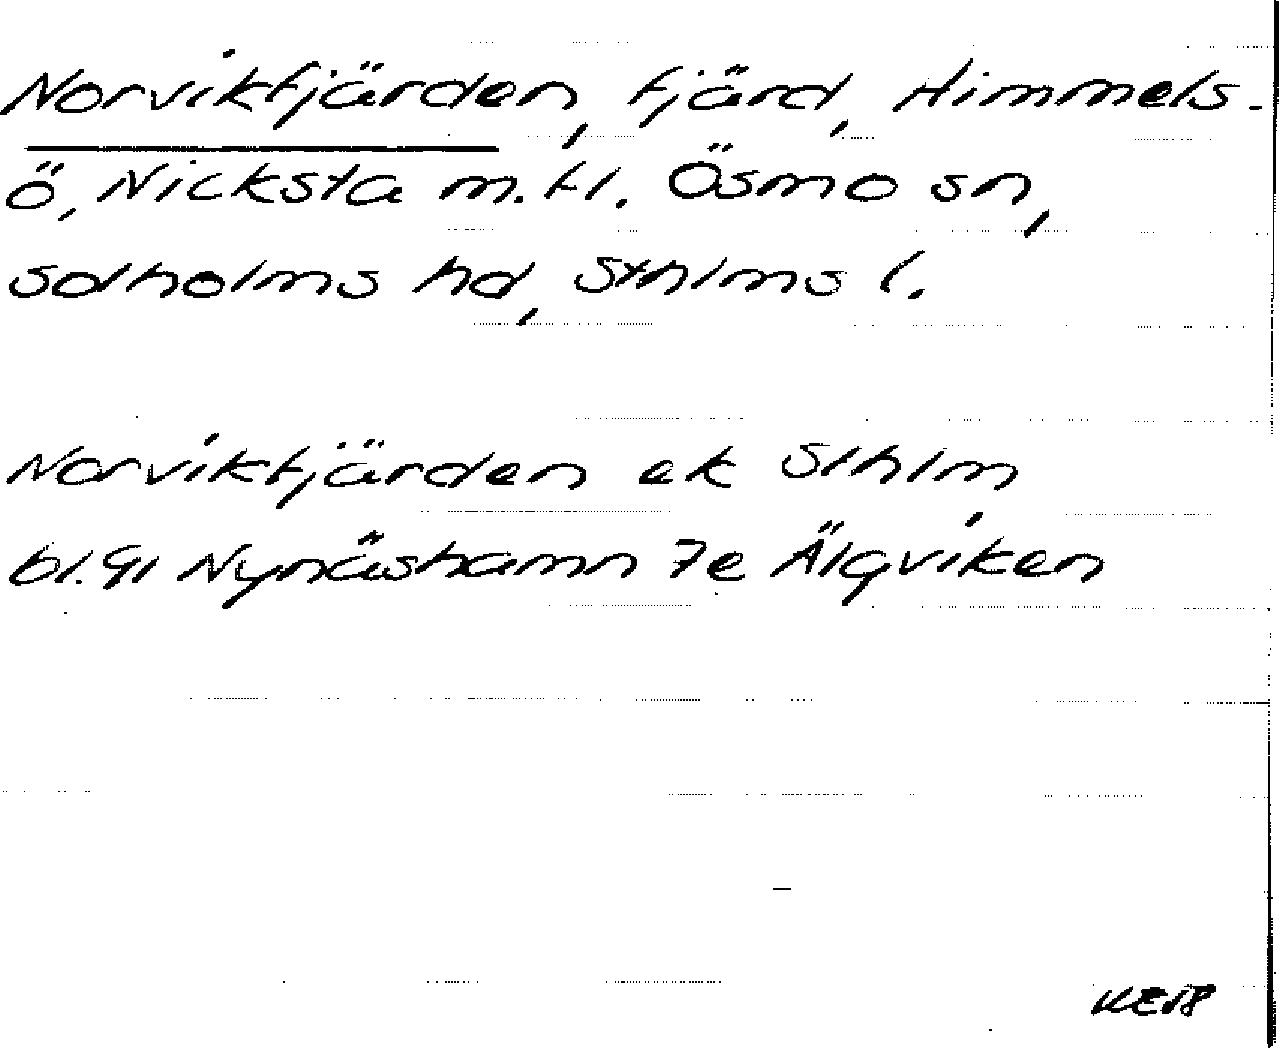 Norvikfjärden, fjärd, Himmels-
ö, Nicksta m.fl. Ösmo sn,
Sotholms hd, Sthlms l.
Norvikfjärden ek Sthlm
bl. 91 Nynäshamn 7e Älgviken